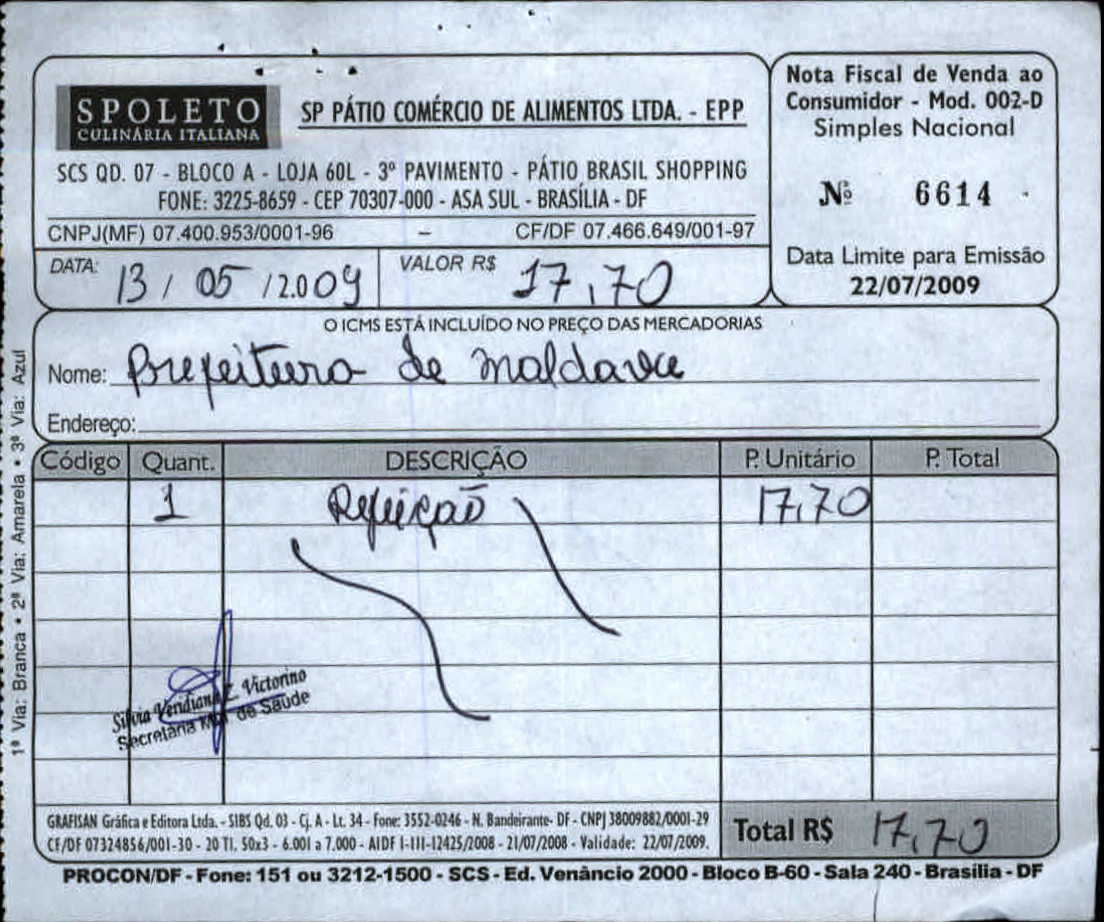 SPOLETO
CULINÁRIA ITALIANA
SP PÁTIO COMÉRCIO DE ALIMENTOS LTDA. - EPP
SCS QD. 07 - BLOCO A - LOJA 60L - 3º PAVIMENTO - PÁTIO BRASIL SHOPPING
FONE: 3225-8659 - CEP 70307-000 - ASA SUL - BRASÍLIA - DF
CNPJ(MF) 07.400.953/0001-96 - CF/DF 07.466.649/001-97
Nota Fiscal de Venda ao
Consumidor - Mod. 002-D
Simples Nacional
Nº 6614
Data Limite para Emissão
22/07/2009
DATA: 13 / 05 / 2.009 VALOR R$ 17,70
O ICMS ESTÁ INCLUÍDO NO PREÇO DAS MERCADORIAS
Nome: Prefeitura de
Endereço:
Código Quant. DESCRIÇÃO P. Unitário P. Total
1 Refeição 17,70
Silvia Veridiana Z. Victorino
Secretária Mun. de Saúde
GRAFISAN Gráfica e Editora Ltda. - SIBS Qd. 03 - Cj. A - Lt. 34 - Fone: 3552-0246 - N. Bandeirante- DF - CNPJ 38009882/0001-29
CF/DF 07324856/001-30 - 20 Tl. 50x3 - 6.001 a 7.000 - AIDF I-III-12425/2008 - 21/07/2008 - Validade: 22/07/2009.
Total R$ 17,70
PROCON/DF - Fone: 151 ou 3212-1500 - SCS - Ed. Venâncio 2000 - Bloco B-60 - Sala 240 - Brasília - DF
1ª Via: Branca • 2ª Via: Amarela • 3ª Via: Azul